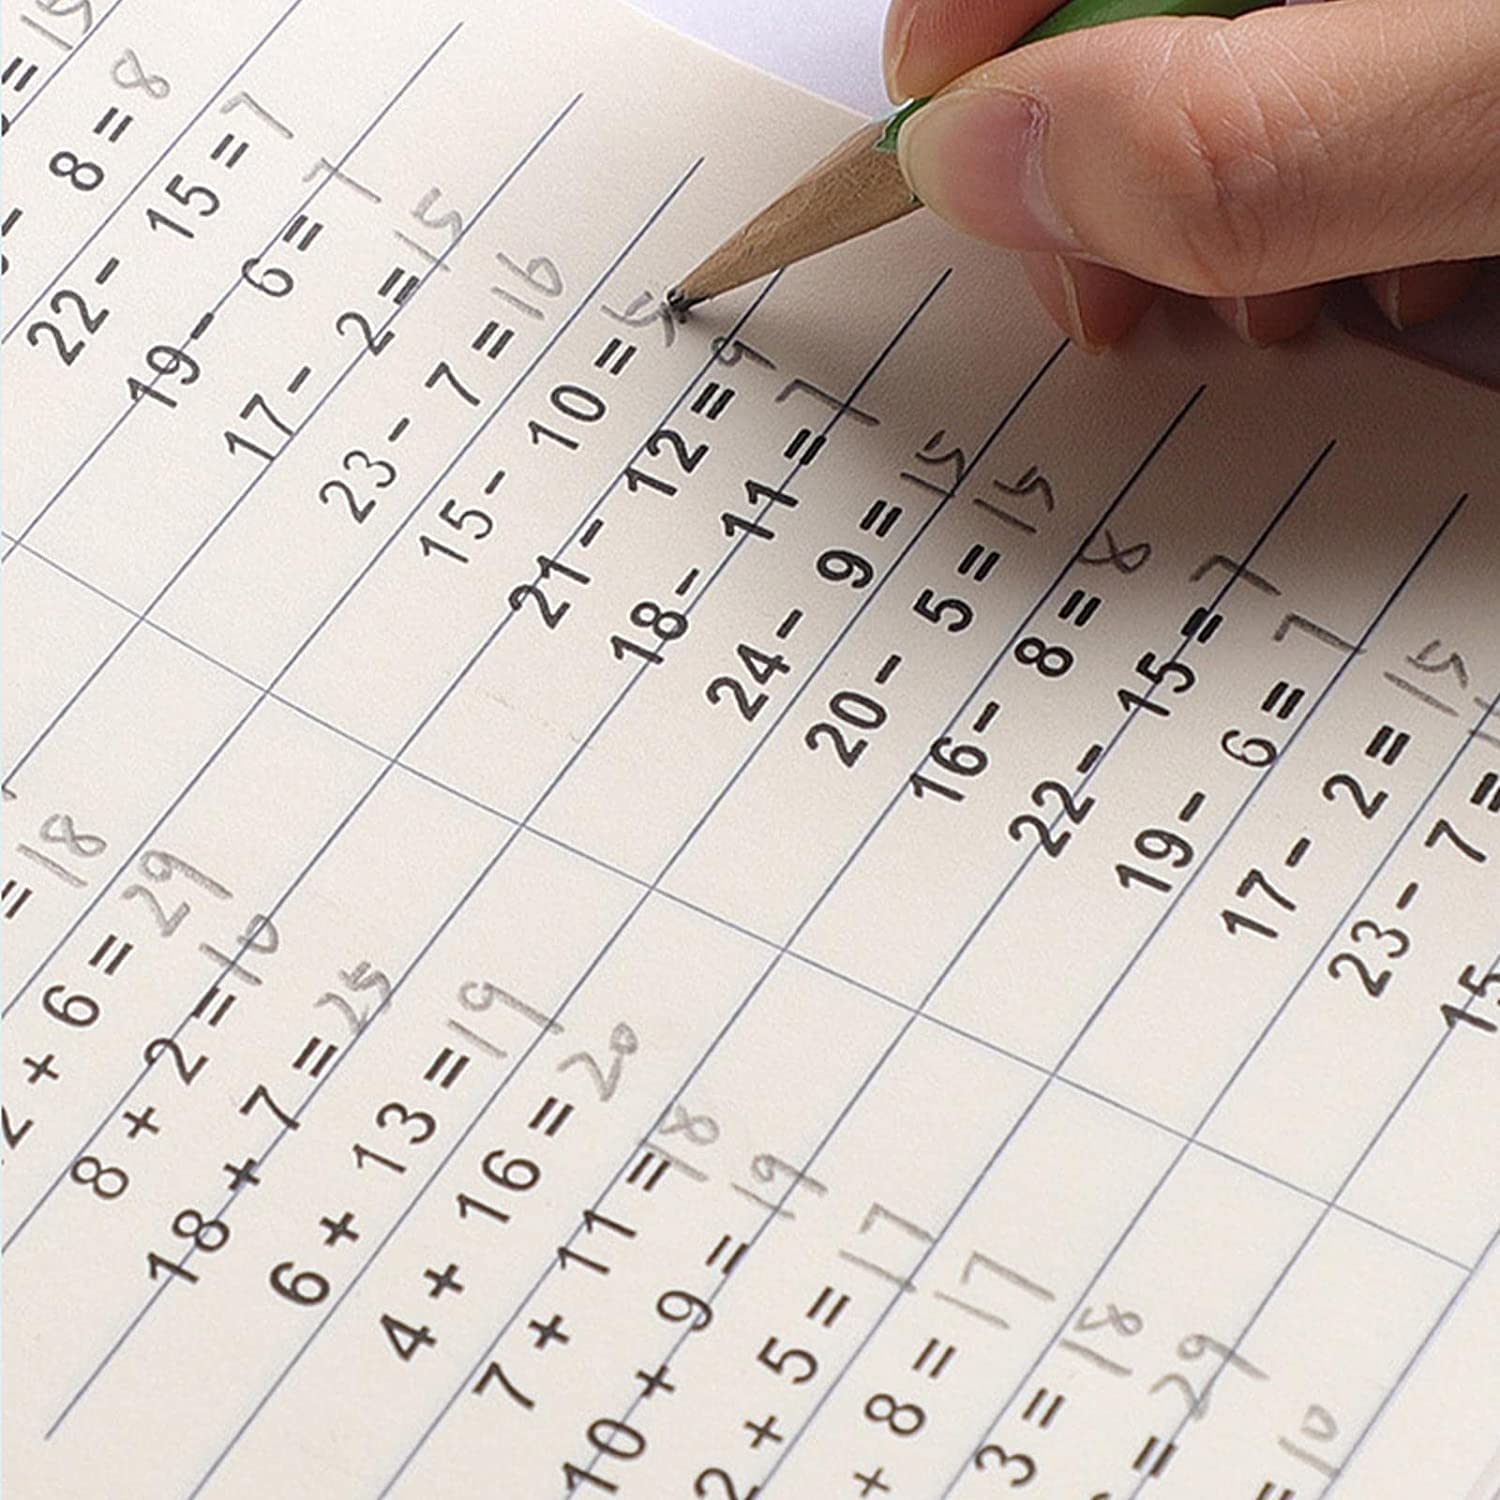 = 15
- 8 = 8
22 - 15 = 7
19 - 6 = 7
17 - 2 = 15
23 - 7 = 16
15 - 10 = 5
21 - 12 = 9
18 - 11 = 7
24 - 9 = 15
20 - 5 = 15
16 - 8 = 8
22 - 15 = 7
19 - 6 = 7
17 - 2 = 15
23 - 7 =
15
= 18
2 + 6 = 29
8 + 2 = 10
18 + 7 = 25
6 + 13 = 19
4 + 16 = 20
7 + 11 = 18
10 + 9 = 19
2 + 5 = 17
+ 8 = 17
3 = 18
= 29
= 10